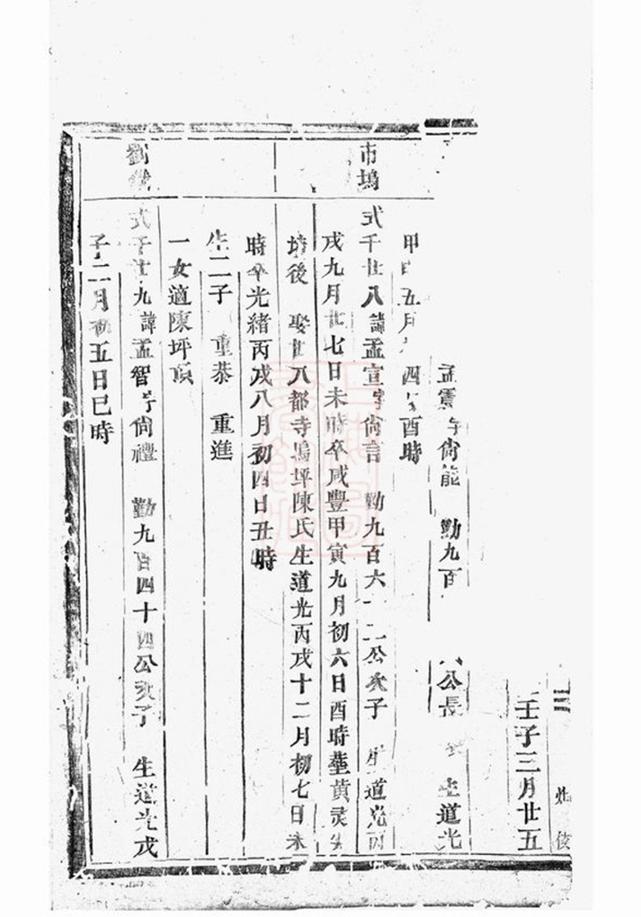 壬子三月廿五
孟憲字尚能 勤九百 公長 生道光
甲 五月 四 酉時
市塢
式千廿八諱孟宣字尚言 勤九百六十二公次子 生道光丙
戌九月廿七日未時卒咸豐甲寅九月初六日酉時葬黄灵
塆後 娶廿八都寺塢坪陳氏生道光丙戌十二月初七日未
時卒光緒丙戌八月初四日丑時
生二子 重恭 重進
一女適陳坪頂
式千廿九諱孟智字尚禮 勤九百四十四公次子 生道光戊
子二月初五日巳時